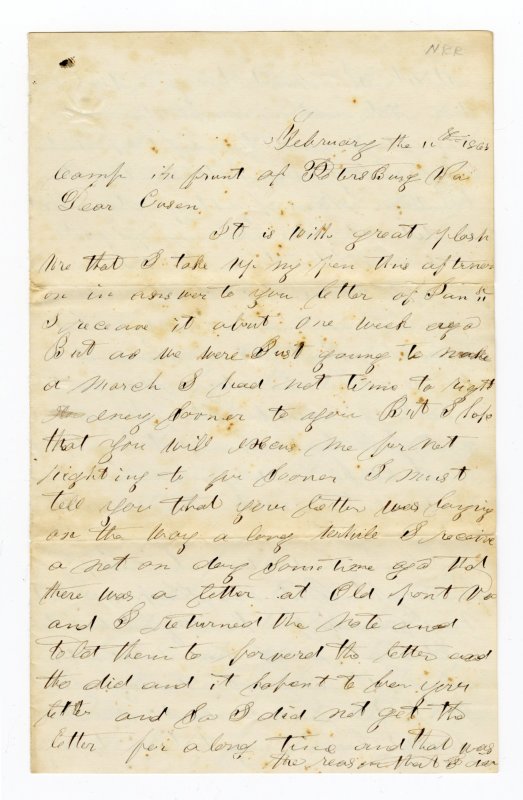 N&R
February the 11th 1865
Camp in frunt of Peters Burg Va
Dear Cusen
It is with great plash
ure that I take up my pen this afternon
on in answer to you letter of Jan
I receave it about one week ago
But as we were Just goung to make
a March I had not time to right
eney Sooner to you But I hop
that you will excus me for not
Righting to you Sooner I must
tell you that your letter was laying
on the way a long while I receive
a not on day Sometime ago that
there was a letter at Old pont Va
and I returned the Note and
told them to forverd the letter and
tho did and it hapent to bee your
letter and So I did not get the
letter for a long time and that was
the reason that I